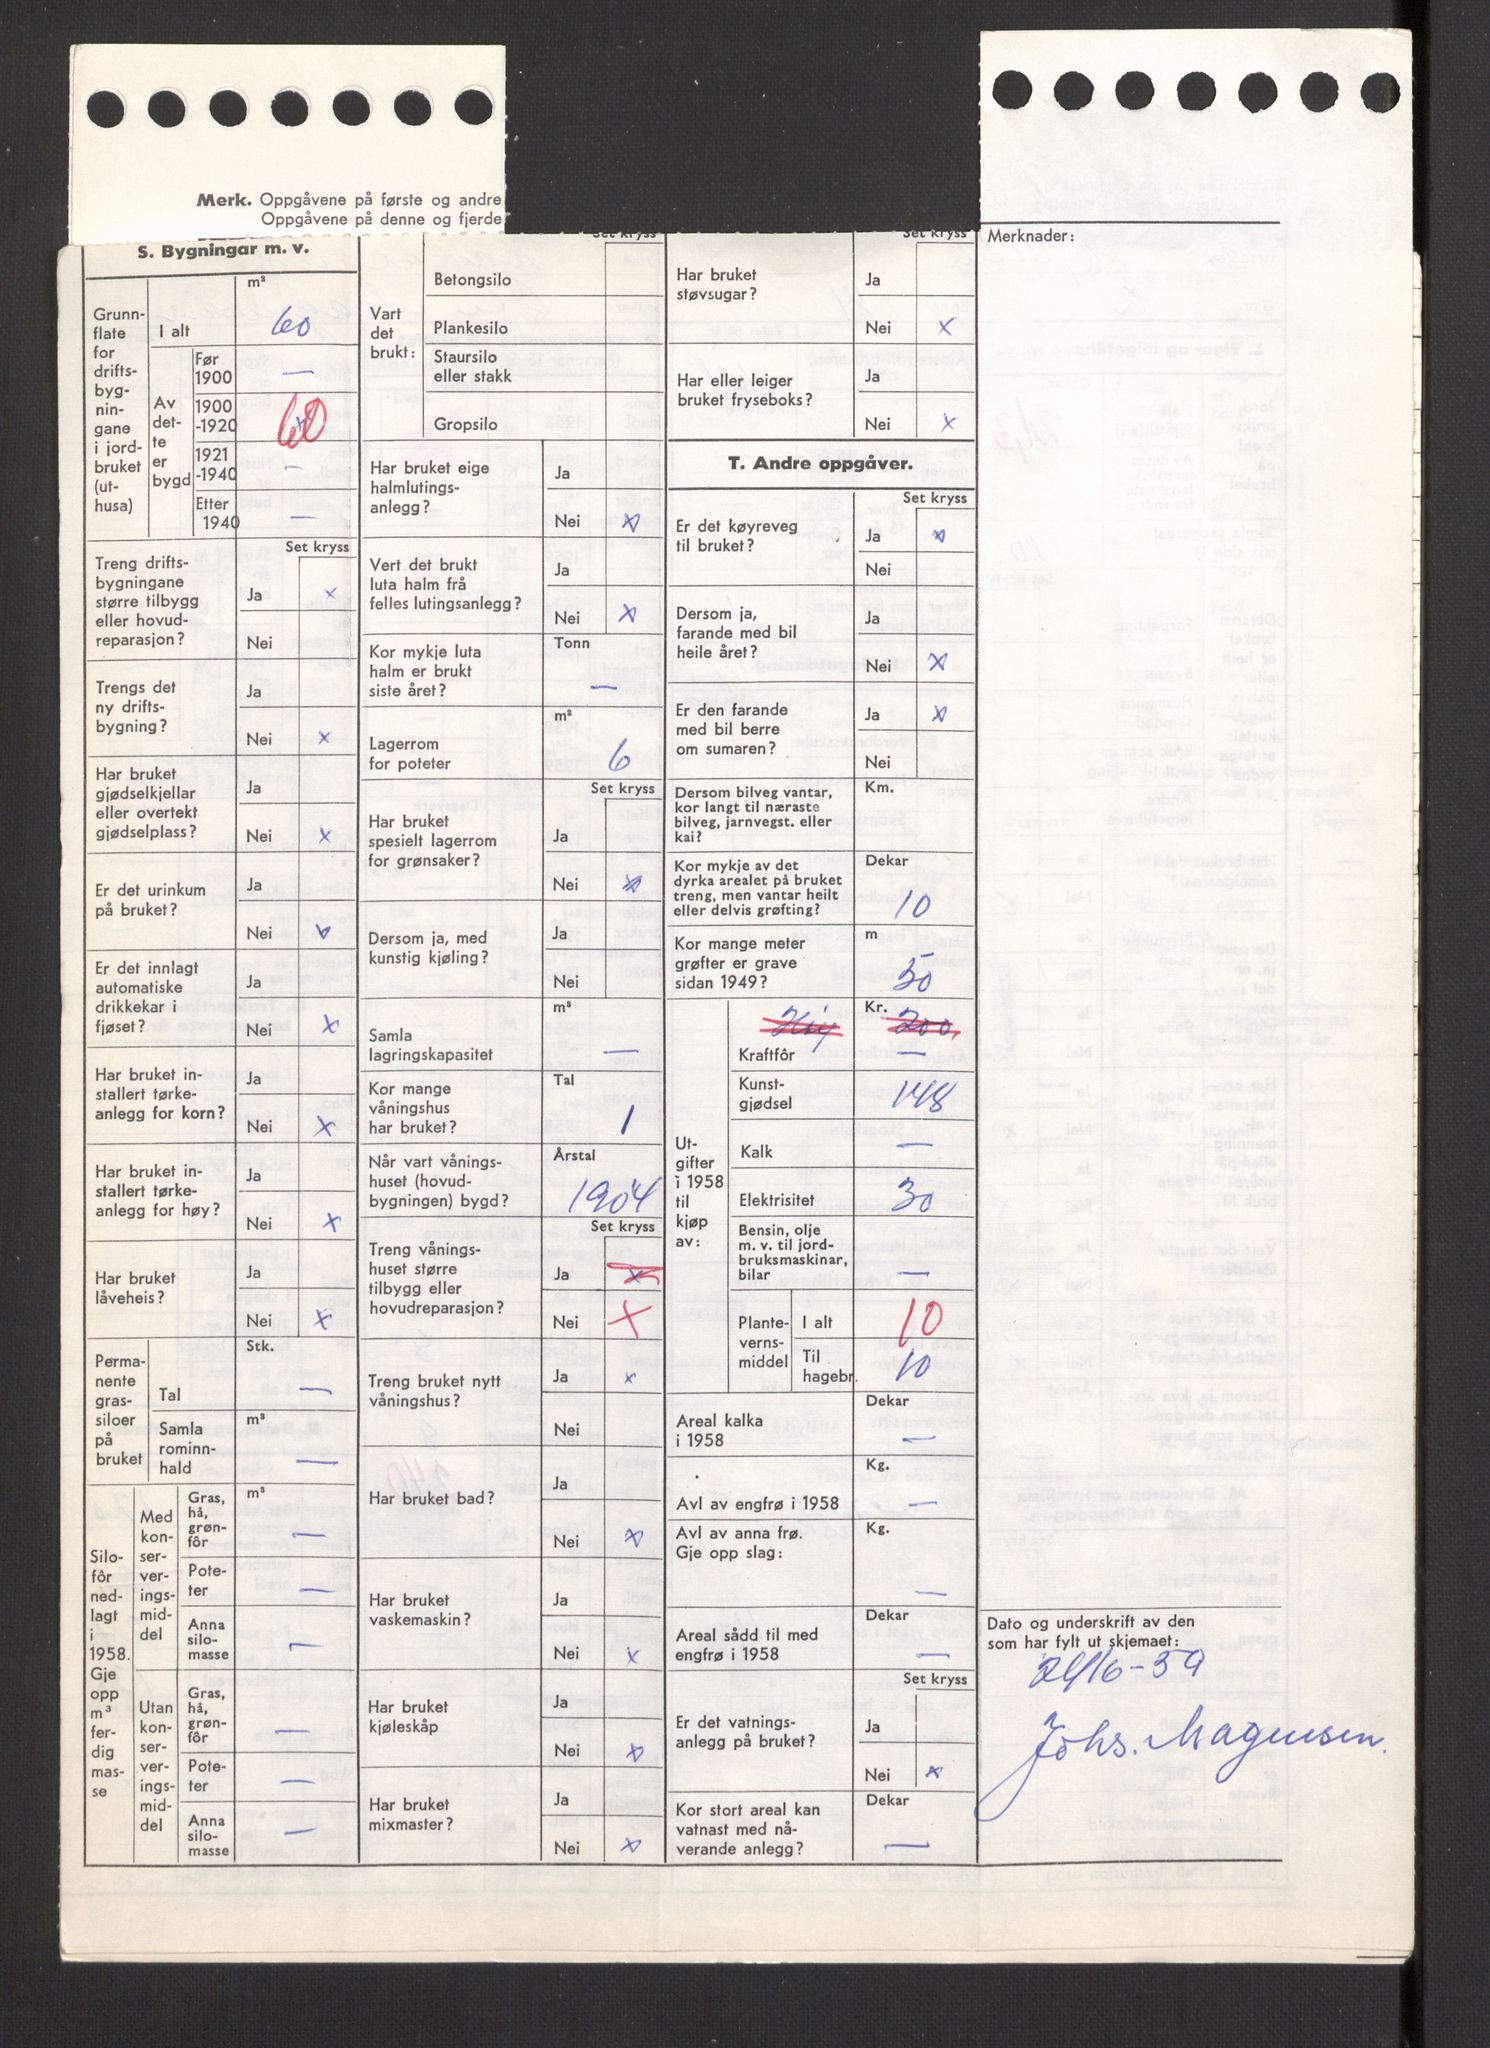 Merk. Oppgåvene på første og andre
Oppgåvene på denne og fjerde
S. Bygningar m. v.
m²
Grunn-
flate
for
drifts-
byg-
nin-
gane
i jord-
bruket
(ut-
husa)
I alt
60
Av
det-
te
er
bygd
Før
1900
—
1900
-1920
x
60
1921
-1940
—
Etter
1940
—
Set kryss
Treng drifts-
bygningane
større tilbygg
eller hovud-
reparasjon?
Ja x
Nei
Trengs det
ny drifts-
bygning?
Ja
Nei x
Har bruket
gjødselkjellar
eller overtekt
gjødselplass?
Ja
Nei x
Er det urinkum
på bruket?
Ja
Nei x
Er det innlagt
automatiske
drikkekar i
fjøset?
Ja
Nei x
Har bruket in-
stallert tørke-
anlegg for korn?
Ja
Nei x
Har bruket in-
stallert tørke-
anlegg for høy?
Ja
Nei x
Har bruket
låveheis?
Ja
Nei x
Perma-
nente
gras-
siloer
på
bruket
Stk.
Tal —
m³
Samla
rominn-
hald —
Silo-
fôr
ned-
lagt
i
1958.
Gje
opp
m³
fer-
dig
mas-
se
Med
kon-
ser-
ver-
ings-
mid-
del
m³
Gras,
hå,
grøn-
fôr —
Pote-
ter —
Anna
silo-
masse —
Utan
kon-
ser-
ver-
ings-
mid-
del
Gras,
hå,
grøn-
fôr —
Pote-
ter —
Anna
silo-
masse —
Set kryss
Vart
det
brukt:
Betongsilo
Plankesilo
Staursilo
eller stakk
Gropsilo
Har bruket eige
halmlutings-
anlegg?
Ja
Nei x
Vert det brukt
luta halm frå
felles lutingsanlegg?
Ja
Nei x
Kor mykje luta
halm er brukt
siste året?
Tonn
—
Lagerrom
for poteter
m²
6
Set kryss
Har bruket
spesielt lagerrom
for grønsaker?
Ja
Nei x
Dersom ja, med
kunstig kjøling?
Ja
Nei
Samla
lagringskapasitet
m³
—
Kor mange
våningshus
har bruket?
Tal
1
Når vart vånings-
huset (hovud-
bygningen) bygd?
Årstal
1904
Set kryss
Treng vånings-
huset større
tilbygg eller
hovudreparasjon?
Ja x
Nei x
Treng bruket nytt
våningshus?
Ja x
Nei
Har bruket bad?
Ja
Nei x
Har bruket
vaskemaskin?
Ja
Nei x
Har bruket
kjøleskåp
Ja
Nei x
Har bruket
mixmaster?
Ja
Nei x
Set kryss
Har bruket
støvsugar?
Ja
Nei x
Har eller leiger
bruket fryseboks?
Ja
Nei x
T. Andre oppgåver.
Set kryss
Er det køyreveg
til bruket?
Ja x
Nei
Dersom ja,
farande med bil
heile året?
Ja
Nei x
Er den farande
med bil berre
om sumaren?
Ja x
Nei
Dersom bilveg vantar,
kor langt til næraste
bilveg, jarnvegst. eller
kai?
Km.
Kor mykje av det
dyrka arealet på bruket
treng, men vantar heilt
eller delvis grøfting?
Dekar
10
Kor mange meter
grøfter er grave
sidan 1949?
m
50
Ut-
gifter
i 1958
til
kjøp
av:
Kr.
Høy 200
Kraftfôr —
Kunst-
gjødsel 148
Kalk —
Elektrisitet 30
Bensin, olje
m. v. til jord-
bruksmaskinar,
bilar —
Plante-
verns-
middel
I alt 10
Til
hagebr. 10
Areal kalka
i 1958
Dekar
—
Avl av engfrø i 1958
Kg.
—
Avl av anna frø.
Gje opp slag:
Kg.
—
Areal sådd til med
engfrø i 1958
Dekar
—
Set kryss
Er det vatnings-
anlegg på bruket?
Ja
Nei x
Kor stort areal kan
vatnast med nå-
verande anlegg?
Dekar
—
Merknader:
Dato og underskrift av den
som har fylt ut skjemaet:
24/6-59
Johs. Magnusen.